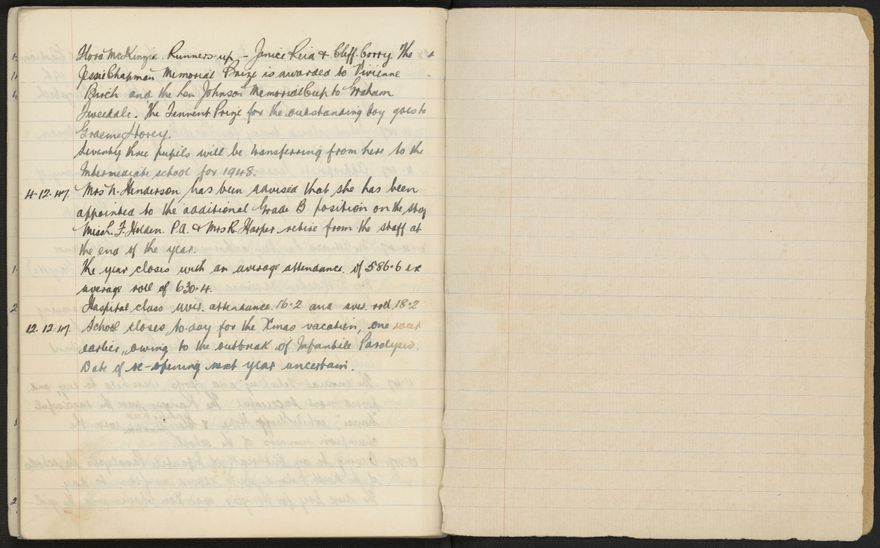 Flora McKinzie. Runners-up - Janice Reid & Cliff Corry. The
Jessie Chapman Memorial Prize is awarded to Vivienne
Birch and the Len Johnson Memorial Cup to Graham
Tweedale. The Tennent Prize for the outstanding boy goes to
Graeme Storey.
Seventy three pupils will be transferring from here to the
Intermediate school for 1948.
4-12-47. Mrs N. Henderson has been advised that she has been
appointed to the additional Grade B position on the staff
Miss L. F. Holden. P.A. & Mrs R Harper retire from the staff at
the end of the year.
The year closes with an average attendance of 586.6 ex
average roll of 630.4.
Hospital class aver. attendance 16.2 and aver. roll 18.2
12.12.47 School closes to-day for the Xmas vacation, one
earlier, owing to the outbreak of Infantile Paralysis.
Date of re-opening next year uncertain.